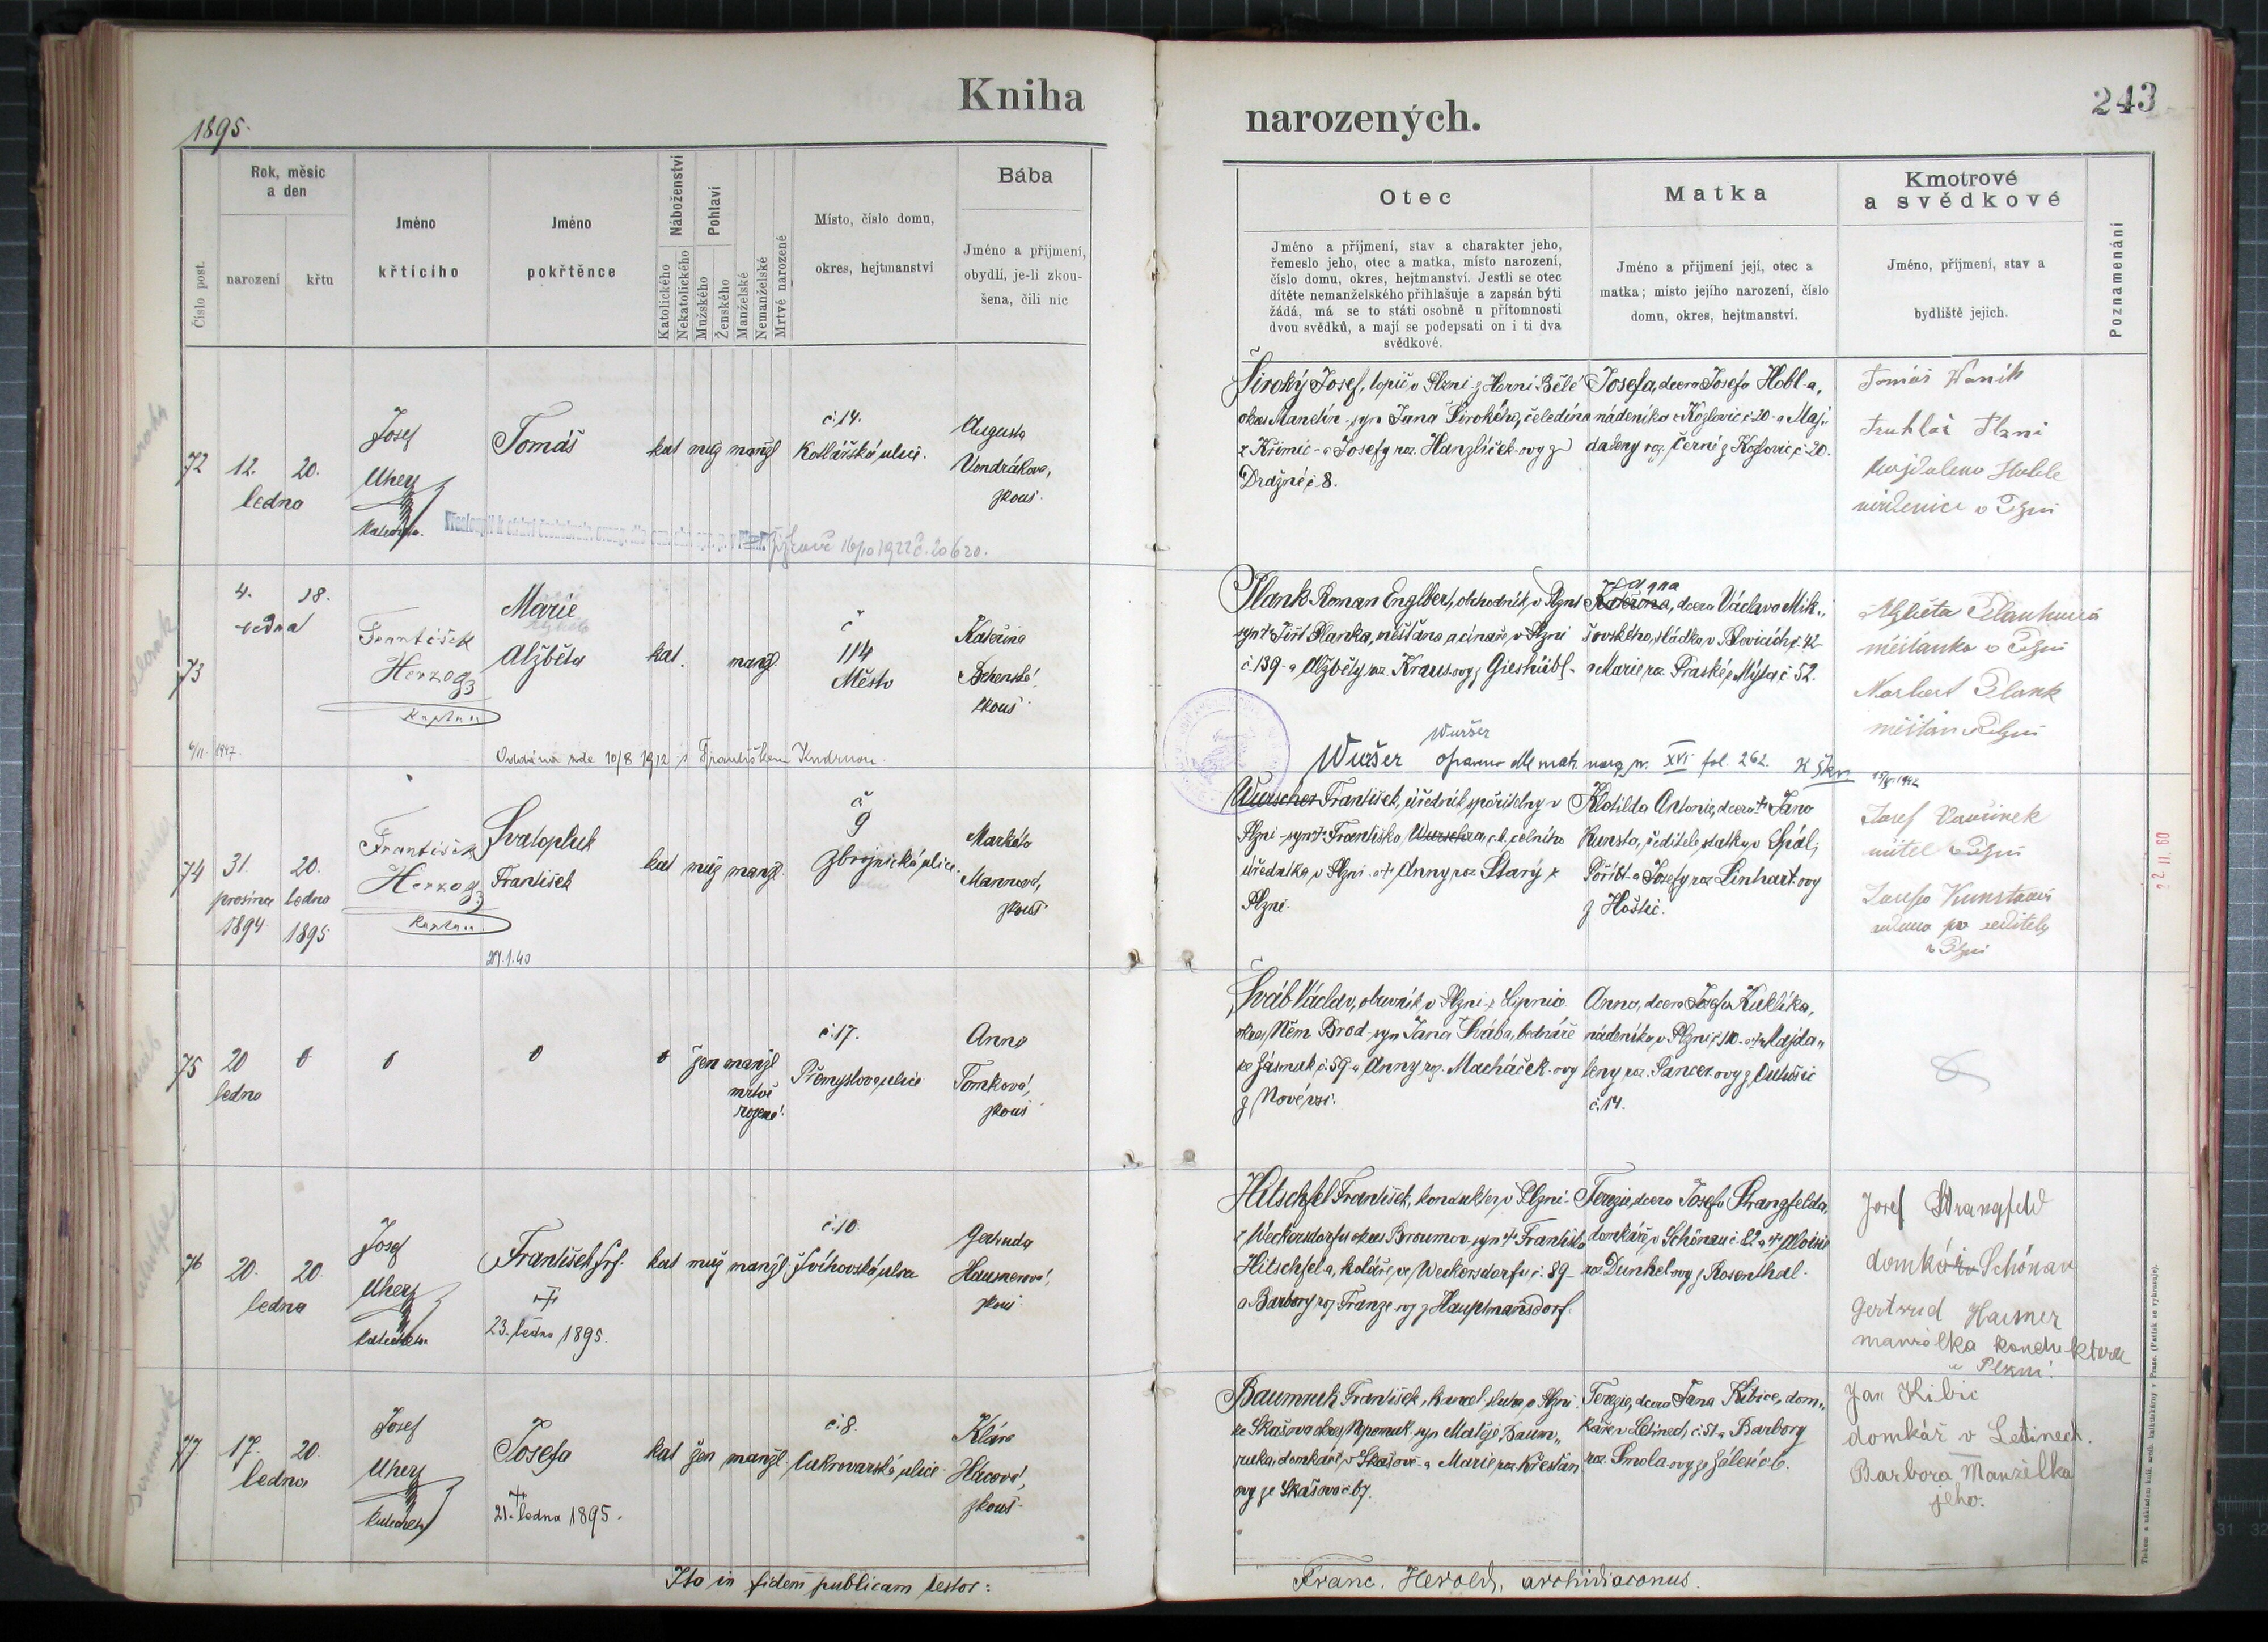 Kniha
narozených.
243
1895.
Rok, měsíc
a den
Číslo post.
narození
křtu
Jméno
křtícího
Jméno
pokřtěnce
Náboženství
Katolického
Nekatolického
Pohlaví
Mužského
Ženského
Manželské
Nemanželské
Mrtvě narozené
Místo, číslo domu,
okres, hejtmanství
Bába
Jméno a příjmení,
obydlí, je-li zkou-
šena, čili nic
Otec
Jméno a příjmení, stav a charakter jeho,
řemeslo jeho, otec a matka, místo narození,
číslo domu, okres, hejtmanství. Jestli se otec
dítěte nemanželského přihlašuje a zapsán býti
žádá, má se to státi osobně u přítomnosti
dvou svědků, a mají se podepsati on i ti dva
svědkové.
Matka
Jméno a příjmení její, otec a
matka; místo jejího narození, číslo
domu, okres, hejtmanství.
Kmotrové
a svědkové
Jméno, příjmení, stav a
bydliště jejich.
Poznamenání
72
12. 20.
ledna
Josef
Uherz
katecheta.
Tomáš
kat muž manžl
č. 14.
Kotlářská ulice.
Augusta
Vondráková,
zkouš.
16/10 1922 č. 20620.
Široký Josef, topič v Plzni z Horní Bělé
okres Manetín - syn Jana Širokého, čeledína
z Křimic - a Josefy roz. Hanzlíček-ovy z
Dražně č. 8.
Josefa, dcera Josefa Hobl-a,
nádeníka z Kozlovic č 20 - a Maj-
daleny roz. Černé z Kozlovic č. 20.
Tomáš Vaník
Truhlář Plzni
73
4. 18.
ledna
František
Herzog
Kaplan
Marie
Alžběta
kat. manžl.
č
114
Město
Kateřina
zkouš.
6/11. 1947.
Oddána dne 10/8 1912 s Františkem Kudrnou.
Plank Roman Englbert, obchodník v Plzni
syn † Jiří Planka, měšťana a cínaře, v Plzni
č. 139 - a Alžběty roz. Kraus-ovy z Gieshübl -
Kateřina, dcera Václava Mik-
šovského, sládka v
a Marie roz. Praské z Mýta č 52.
Alžběta Planková
měšťanka v Plzni
Norbert Plank
měšťan Plzni
74
31. 20.
prosince ledna
1894 1895
František
Herzog
Kaplan
Svatopluk
František
kat muž manžl.
č
9
Zbrojnická ulice.
Markéta
Mannová,
zkouš.
29.1.40
Wuršer
Wuršer opraveno dle mat. naroz. sv. XVI fol. 262.
Wurscher František, úředník spořitelny v
Plzni - syn † Františka Wurschera, c.k. celního
úředníka v Plzni - a † Anny roz. Starý z
Plzně.
Klotilda Antonie, dcera † Jana
Kunsta, ředitele statku v Spál.
Poříčí - a Josefy roz. Linhart-ovy
z Hoštic.
Josef Vavřinek
učitel v Plzni
Josefa Kunstová
vdova po řediteli
v Plzni
22 11. 60
75
20
ledna
žen manžl
mrtvě
rozené.
č. 17.
Přemyslova ulice
Anna
Tomková,
zkouš
Šváb Václav, obuvník v Plzni z Lipnice
okres Něm. Brod - syn Jana Švába, bednáře
ze Zásmuk č. 59 - a Anny roz. Macháček-ovy
z Nové vsi.
Anna, dcera Josefa Kuklíka,
nádeníka v Plzni č 110 - a † Majda-
leny roz. Sancer-ovy z
č. 14.
76
20. 20.
ledna
Josef
Uherz
katecheta
František Jos.
†
23. ledna 1895.
kat muž manžl.
č. 10.
Švihovská ulice
Gertruda
Hausnerová,
zkouš.
Hitschfel František, kondukter v Plzni -
z Weckersdorfu okres Broumov - syn † Františka
Hitschfel-a, koláře, ve Weckersdorfu č. 89 -
a Barbory roz. Franze-ovy z Hauptmansdorf.
Terezie, dcera Josefa Strangfelda,
domkáře v Schönau č. 22 a † Aloisie
roz. Dunkel-ovy z Rosenthal.
Josef Strangfeld
domkář v Schönau
Gertrud Hausner
manželka konduktera
v Plzni.
77
17. 20.
ledna
Josef
Uherz
katecheta
Josefa
†
21. ledna 1895.
kat žen manžl.
č. 8.
Cukrovarská ulice
Klára
Hácová,
zkouš.
Baumruk František, kancel. sluha v Plzni
ze Skašova okres Nepomuk - syn Matěje Baum-
ruka, domkáře, v Skašově - a Marie roz. Křesťan
ovy ze Skašova č 67.
Terezie, dcera Jana Kibice, dom-
káře v Letinech, č. 51 a Barbory
roz. Smola-ovy ze Zálesí č 6.
Jan Kibic
domkář v Letinech.
Barbora Manželka
jeho.
Ita in fidem publicam testor:
Franc. Herold, archidiaconus.